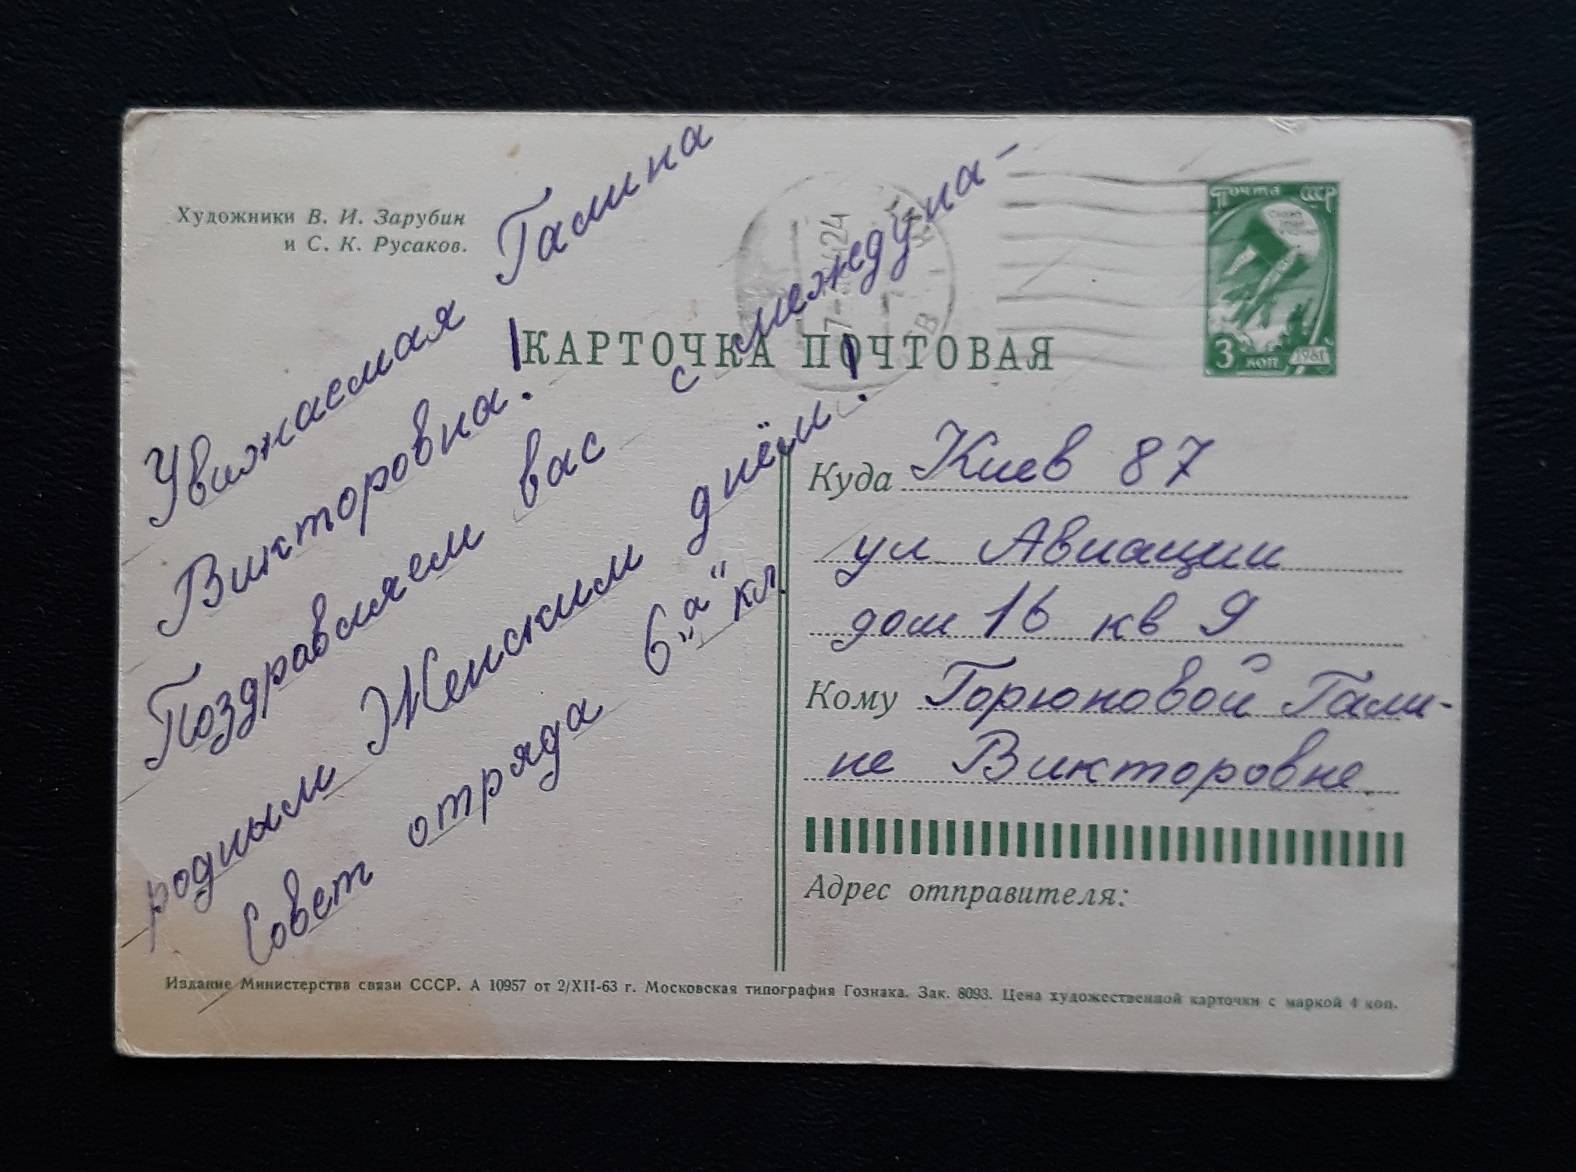 Художники В. И. Зарубин
и С. К. Русаков.
Уважаемая Галина
Викторовна!
Поздравляем вас с междуна-
родным Женским днём!
Совет отряда 6 „а“ кл
КАРТОЧКА ПОЧТОВАЯ
ПОЧТА СССР
3 КОП 1961
Куда Киев 87
ул Авиации
дом 16 кв 9
Кому Горюновой Гали-
не Викторовне.
Адрес отправителя:
Издание Министерства связи СССР. А 10957 от 2/XII-63 г. Московская типография Гознака. Зак. 8093. Цена художественной карточки с маркой 4 коп.